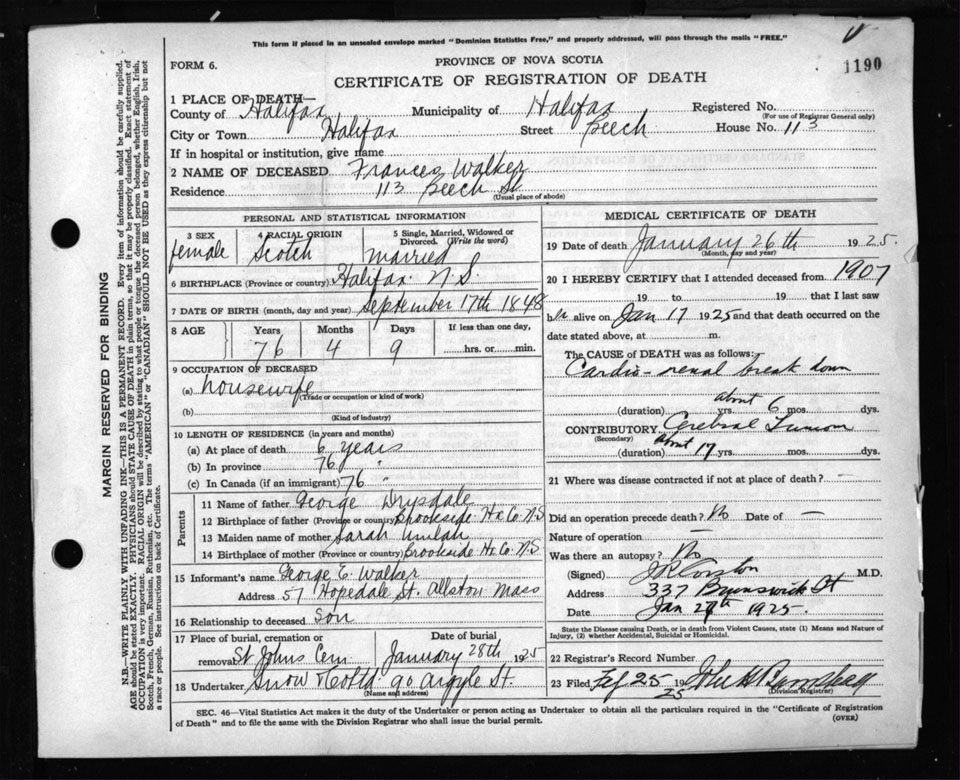 This form if placed in an unsealed envelope marked "Dominion Statistics Free," and properly addressed, will pass through the mails "FREE."
FORM 6.
PROVINCE OF NOVA SCOTIA
1190
CERTIFICATE OF REGISTRATION OF DEATH
1 PLACE OF DEATH—
County of Halifax Municipality of Halifax Registered No.
(For use of Registrar General only)
City or Town Halifax Street Beech House No. 113
If in hospital or institution, give name
2 NAME OF DECEASED Frances Walker
Residence 113 Beech St
(Usual place of abode)
PERSONAL AND STATISTICAL INFORMATION
3 SEX 4 RACIAL ORIGIN 5 Single, Married, Widowed or Divorced. (Write the word)
female Scotch married
6 BIRTHPLACE (Province or country) Halifax N.S.
7 DATE OF BIRTH (month, day and year) September 17th 1848
8 AGE Years Months Days If less than one day,
76 4 9 hrs. or min.
9 OCCUPATION OF DECEASED
(a) housewife
(Trade or occupation or kind of work)
(b)
(Kind of industry)
10 LENGTH OF RESIDENCE (in years and months)
(a) At place of death 6 years
(b) In province 76 "
(c) In Canada (if an immigrant) 76 "
Parents
11 Name of father George Drysdale
12 Birthplace of father (Province or country) Brookside Hx. Co. N.S
13 Maiden name of mother Sarah
14 Birthplace of mother (Province or country) Brookside Hx. Co. N.S
15 Informant's name George E. Walker
Address 57 Hopedale St. Allston Mass
16 Relationship to deceased Son
17 Place of burial, cremation or removal Date of burial
St Johns Cem January 28th 1925
18 Undertaker Snow & Co Ltd 90 Argyle St.
(Name and address)
MEDICAL CERTIFICATE OF DEATH
19 Date of death January 26th 1925.
(Month, day and year)
20 I HEREBY CERTIFY that I attended deceased from 1907
19 to 19 that I last saw
her alive on Jan 17 1925 and that death occurred on the
date stated above, at m.
The CAUSE OF DEATH was as follows:
Cardio-renal break down
(duration) yrs. about 6 mos. dys.
CONTRIBUTORY Cerebral Tumor
(Secondary)
(duration) about 17 yrs. mos. dys.
21 Where was disease contracted if not at place of death? —
Did an operation precede death? No Date of —
Nature of operation —
Was there an autopsy? No
(Signed) M.D.
Address 337 Brunswick St
Date Jan 27th 1925.
State the Disease causing Death, or in death from Violent Causes, state (1) Means and Nature of
Injury, (2) whether Accidental, Suicidal or Homicidal.
22 Registrar's Record Number
23 Filed 25 1925 John H
(Division Registrar)
SEC. 46—Vital Statistics Act makes it the duty of the Undertaker or person acting as Undertaker to obtain all the particulars required in the "Certificate of Registration
of Death" and to file the same with the Division Registrar who shall issue the burial permit.
(OVER)
MARGIN RESERVED FOR BINDING
N.B.—WRITE PLAINLY WITH UNFADING INK—THIS IS A PERMANENT RECORD. Every item of information should be carefully supplied.
AGE should be stated EXACTLY. PHYSICIANS should STATE CAUSE OF DEATH in plain terms, so that it may be properly classified. Exact statement of
OCCUPATION is very important. RACIAL ORIGIN will be described by stating to what people or tongue the deceased person belonged, whether English, Irish,
Scotch, French, German, Russian, Ruthenian, etc. The terms "AMERICAN" or "CANADIAN" SHOULD NOT BE USED as they express citizenship but not
a race or people. See instructions on back of Certificate.